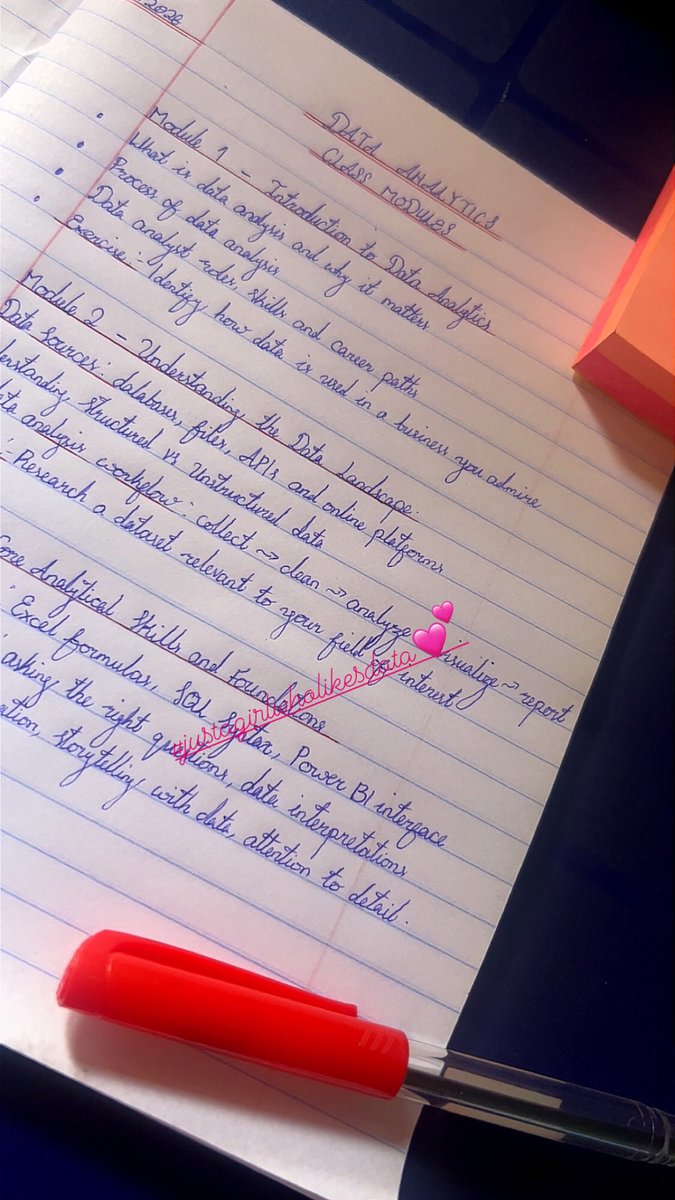 2026
DATA ANALYTICS
CLASS MODULES
Module 1 - Introduction to Data Analytics
What is data analysis and why it matters
Process of data analysis
Data analyst roles, skills and career paths
Exercise: Identify how data is used in a business you admire
Module 2 - Understanding the Data Landscape.
Data Sources: databases, files, APIs and online platforms
structured vs Unstructured data
analysis workflow: collect → clean → analyze → visualize → report
Research a dataset relevant to your field of interest
Core Analytical Skills and Foundations
Excel formulas, SQL Syntax, Power BI interface
asking the right questions, data interpretations
storytelling with data, attention to detail.
ajustagirlwholikesdata